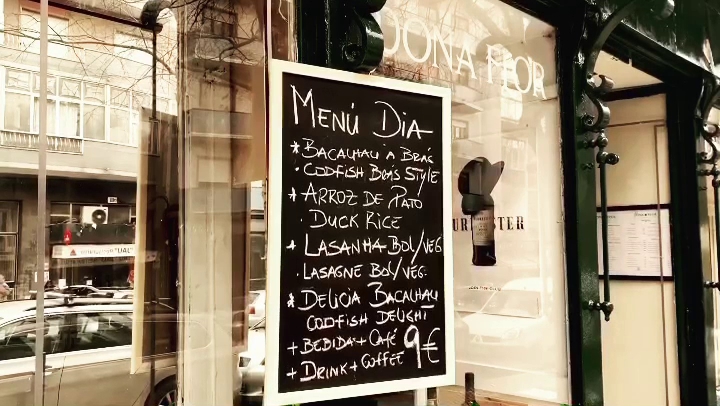 DONA FLOR
MENÚ DIA
* BACALHAU À BRÁS
· CODFISH BRÁS STYLE
* ARROZ DE PATO
· DUCK RICE
* LASANHA BOL/VEG
· LASAGNE BOL/VEG.
* DELICIA BACALHAU
CODFISH DELIGHT
+ BEBIDA + CAFÉ 9€
+ DRINK + COFFEE